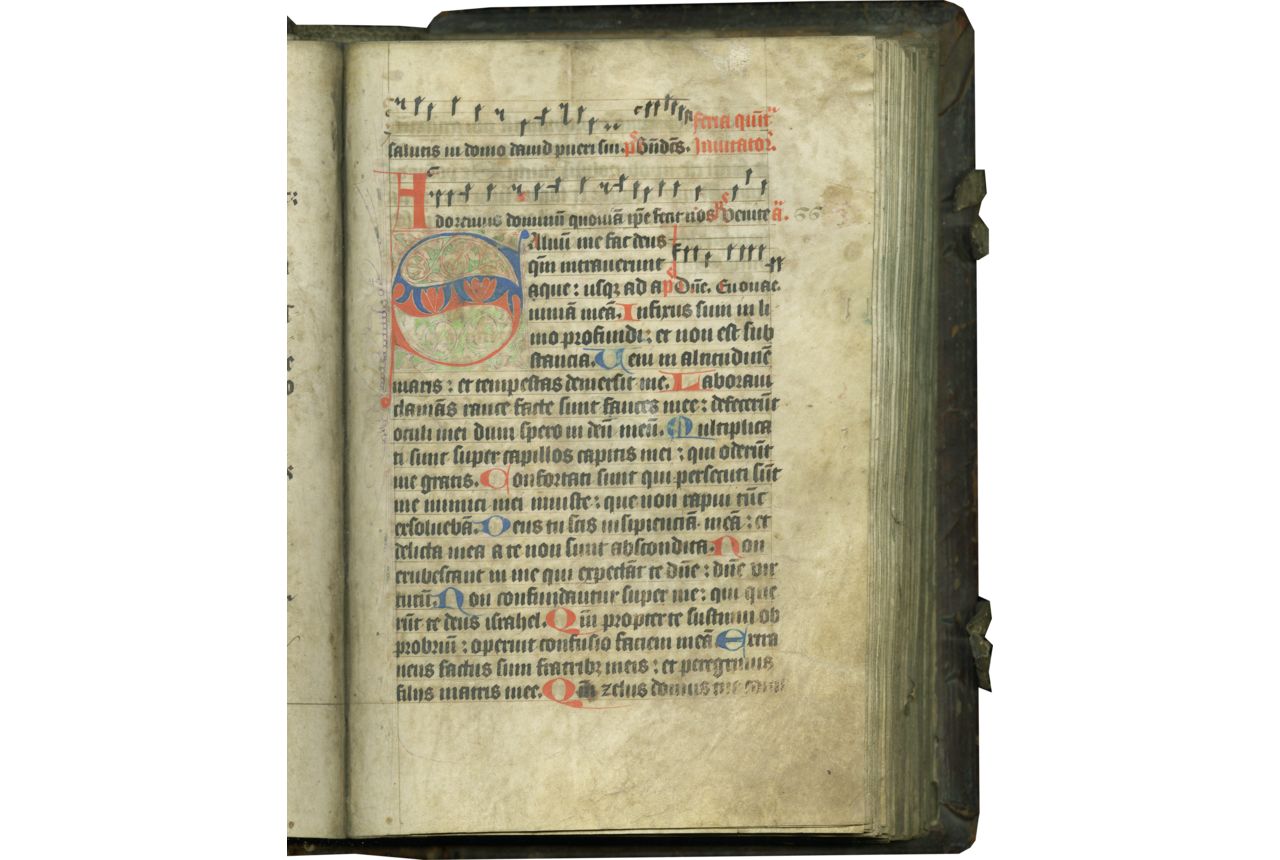 feria quīt
salutis in domo dauid pueri sui. p̄s Bn̄dc̄s. Inuitator.
Adoremus dominū quoniā ip̄e fecit nos p̄s Venite ā. 66
Saluū me fac deus
qm̄ intrauerunt
aque : usq; ad a p̄s Dn̄e. Euouae.
nimā meā. Infixus sum in li
mo profundi : et non est sub
stancia. Veni in altitudinē
maris : et tempestas demersit me. Laboraui
clamās rauce facte sunt fauces mee : defecerūt
oculi mei dum spero in deū meū. Multiplica
ti sunt super capillos capitis mei : qui oderūt
me gratis. Confortati sunt qui persecuti sūt
me inimici mei iniuste : que non rapui tūc
exsoluebā. Deus tu scis insipienciā meā : et
delicta mea a te non sunt abscondita. Non
erubescant in me qui expectāt te dn̄e : dn̄e vir
tutū. Non confundantur super me : qui que
rūt te deus israhel. Qm̄ propter te sustinui ob
probriū : operuit confusio faciem meā Extra
neus factus sum fratrib; meis : et peregrinus
filijs matris mee. Qm̄ zelus domus tue